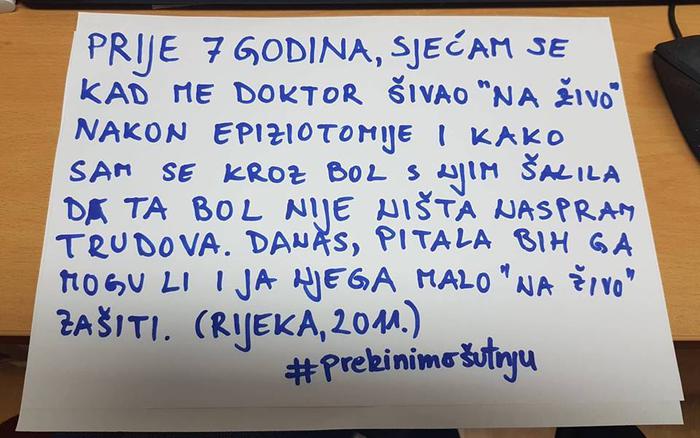 PRIJE 7 GODINA, SJEĆAM SE
KAD ME DOKTOR ŠIVAO "NA ŽIVO"
NAKON EPIZIOTOMIJE I KAKO
SAM SE KROZ BOL S NJIM ŠALILA
DA TA BOL NIJE NIŠTA NASPRAM
TRUDOVA. DANAS, PITALA BIH GA
MOGU LI I JA NJEGA MALO "NA ŽIVO"
ZAŠITI. (RIJEKA, 2011.)
#prekinimošutnju